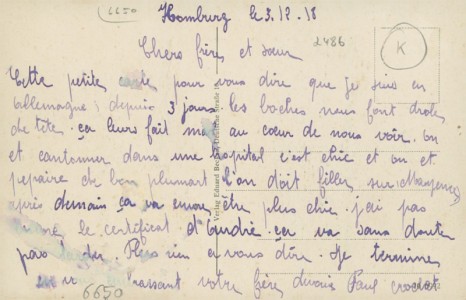 6650
Homburg le 3.12.18
2486
K
Chers frère et sœur
Cette petite carte pour vous dire que je suis en
allemagne depuis 3 jours les boches nous font drole
de tete. ça leurs fait mal au cœur de nous voir. on
et cantonner dans une hopital c'est chic et on et
pepaire de bon plumart l'on doit filler sur Mayence
après demain ça va encore être plus chic. j'ai pas
le certificat d'André. ça va sans doute
pas tarder. Plus rien a vous dire. Je termine
en vous embrassant votre frère Paul
6650
Verlag Eduard